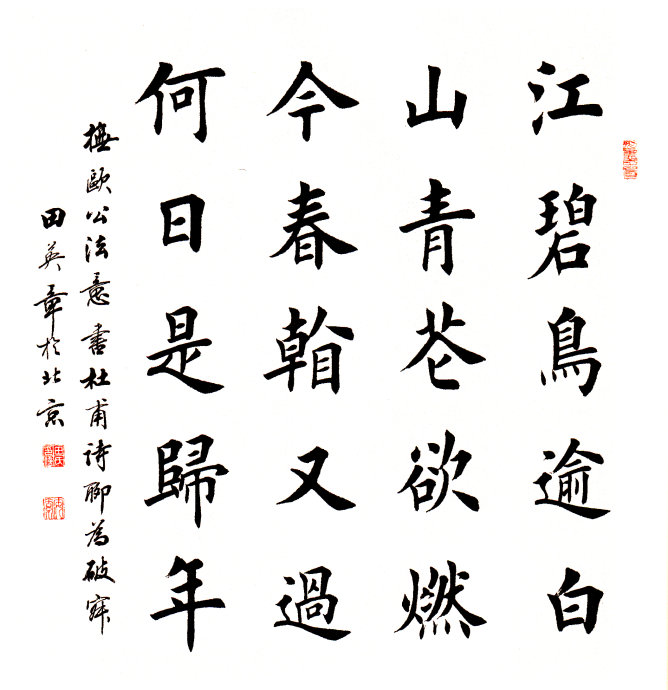 江碧鳥逾白
山青花欲燃
今春看又過
何日是歸年
撫歐公法意書杜甫詩聊為破寂
田英章於北京